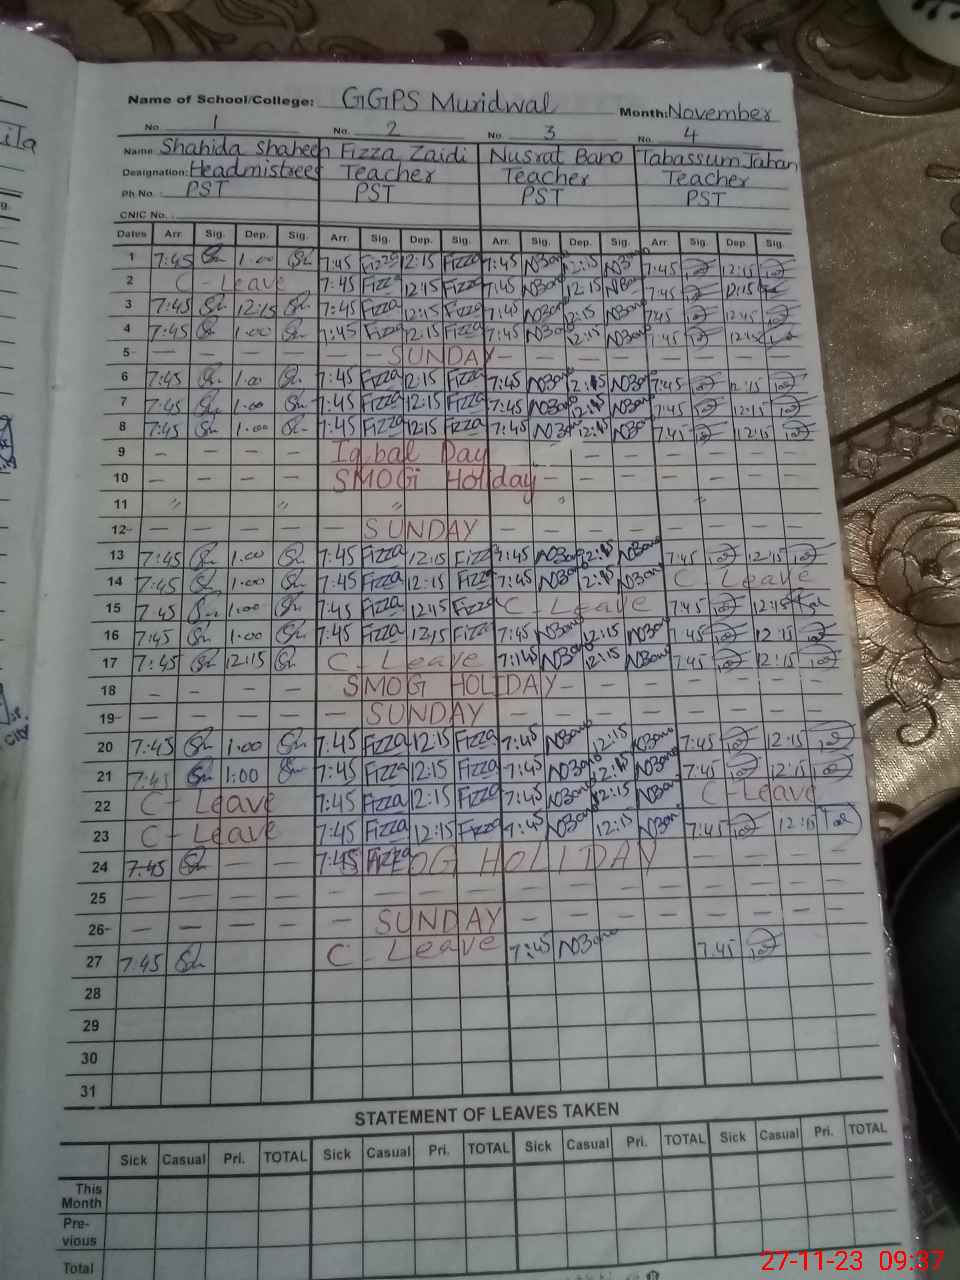 ila
g.
City
Name of School/College: GGPS Muridwal Month: November
No. 1 No. 2 No. 3 No. 4
Name Shahida Shaheen Fizza Zaidi Nusrat Bano Tabassum Jahan
Designation: Headmistress Teacher Teacher Teacher
Ph No. PST PST PST PST
CNIC No.
Dates Arr. Sig. Dep. Sig. Arr. Sig. Dep. Sig. Arr. Sig. Dep. Sig. Arr. Sig. Dep. Sig.
1 7:45 Sh 1.00 Sh 7:45 Fizza 12:15 Fizza 7:45 NBano 12:15 NBano 7:45 12:15
2 C - Leave 7:45 Fizza 12:15 Fizza 7:45 NBano 12:15 NBano 7:45 12:15
3 7:45 Sh 12:15 Sh 7:45 Fizza 12:15 Fizza 7:45 NBano 12:15 NBano 7:45 12:15
4 7:45 Sh 1.00 Sh 7:45 Fizza 12:15 Fizza 7:45 NBano 12:15 NBano 7:45
5- — — — — — SUNDAY — — — — — — —
6 7:45 Sh 1.00 Sh 7:45 Fizza 12:15 Fizza 7:45 NBano 12:15 NBano 7:45 12:15
7 7:45 Sh 1.00 Sh 7:45 Fizza 12:15 Fizza 7:45 NBano 12:15 NBano 7:45 12:15
8 7:45 Sh 1.00 Sh 7:45 Fizza 12:15 Fizza 7:45 NBano 12:15 NBano 7:45 12:15
9 - - - - Iqbal Day - - - - - - -
10 - - - - SMOG Holiday - - - - - -
11 " " " " "
12- — — — — — SUNDAY — — — — — — — —
13 7:45 Sh 1.00 Sh 7:45 Fizza 12:15 Fizza 7:45 NBano 12:15 NBano 7:45 12:15
14 7:45 Sh 1:00 Sh 7:45 Fizza 12:15 Fizza 7:45 NBano 12:15 NBano C Leave
15 7:45 Sh 1:00 Sh 7:45 Fizza 12:15 Fizza C - Leave 7:45 12:15
16 7:45 Sh 1:00 Sh 7:45 Fizza 12:15 Fizza 7:45 NBano 12:15 NBano 7:45 12:15
17 7:45 Sh 12:15 Sh C - Leave 7:45 NBano 12:15 NBano 7:45 12:15
18 - - - - SMOG HOLIDAY - - - - - -
19- — — — — — SUNDAY — — — — — — — —
20 7:45 Sh 1.00 Sh 7:45 Fizza 12:15 Fizza 7:45 NBano 12:15 NBano 7:45 12:15
21 7:45 Sh 1:00 Sh 7:45 Fizza 12:15 Fizza 7:45 NBano 12:15 NBano 7:45 12:15
22 C - Leave 7:45 Fizza 12:15 Fizza 7:45 NBano 12:15 NBano C - Leave
23 C - Leave 7:45 Fizza 12:15 Fizza 7:45 NBano 12:15 NBano 7:45 12:15
24 7:45 Sh — — 7:45 Fizza OG HOLIDAY — — — —
25 — — — — — — — — — — — — — — — —
26- — — — — — SUNDAY — — — — — — — —
27 7:45 Sh C - Leave 7:45 NBano 7:45
28
29
30
31
STATEMENT OF LEAVES TAKEN
Sick Casual Pri. TOTAL Sick Casual Pri. TOTAL Sick Casual Pri. TOTAL Sick Casual Pri. TOTAL
This
Month
Pre-
vious
Total
27-11-23 09:37